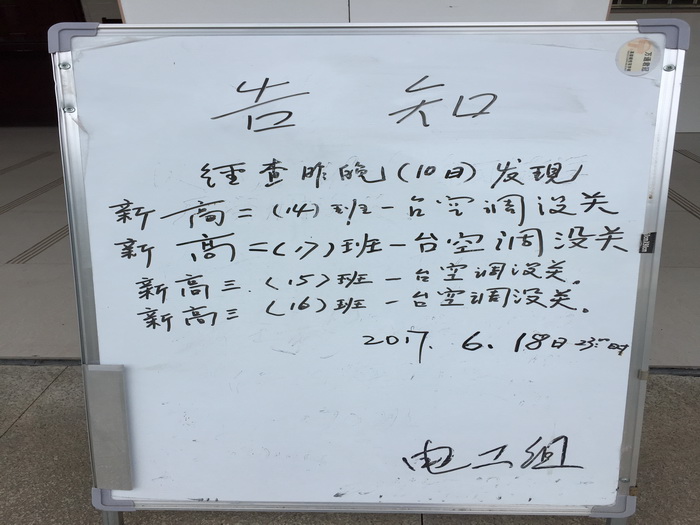 告 知
經查昨晚(10日)发現
新高二(14)班一台空调没关
新高二(17)班一台空调没关
新高三(15)班一台空调没关。
新高三(16)班一台空调没关。
2017.6.18日23:00时
电工组